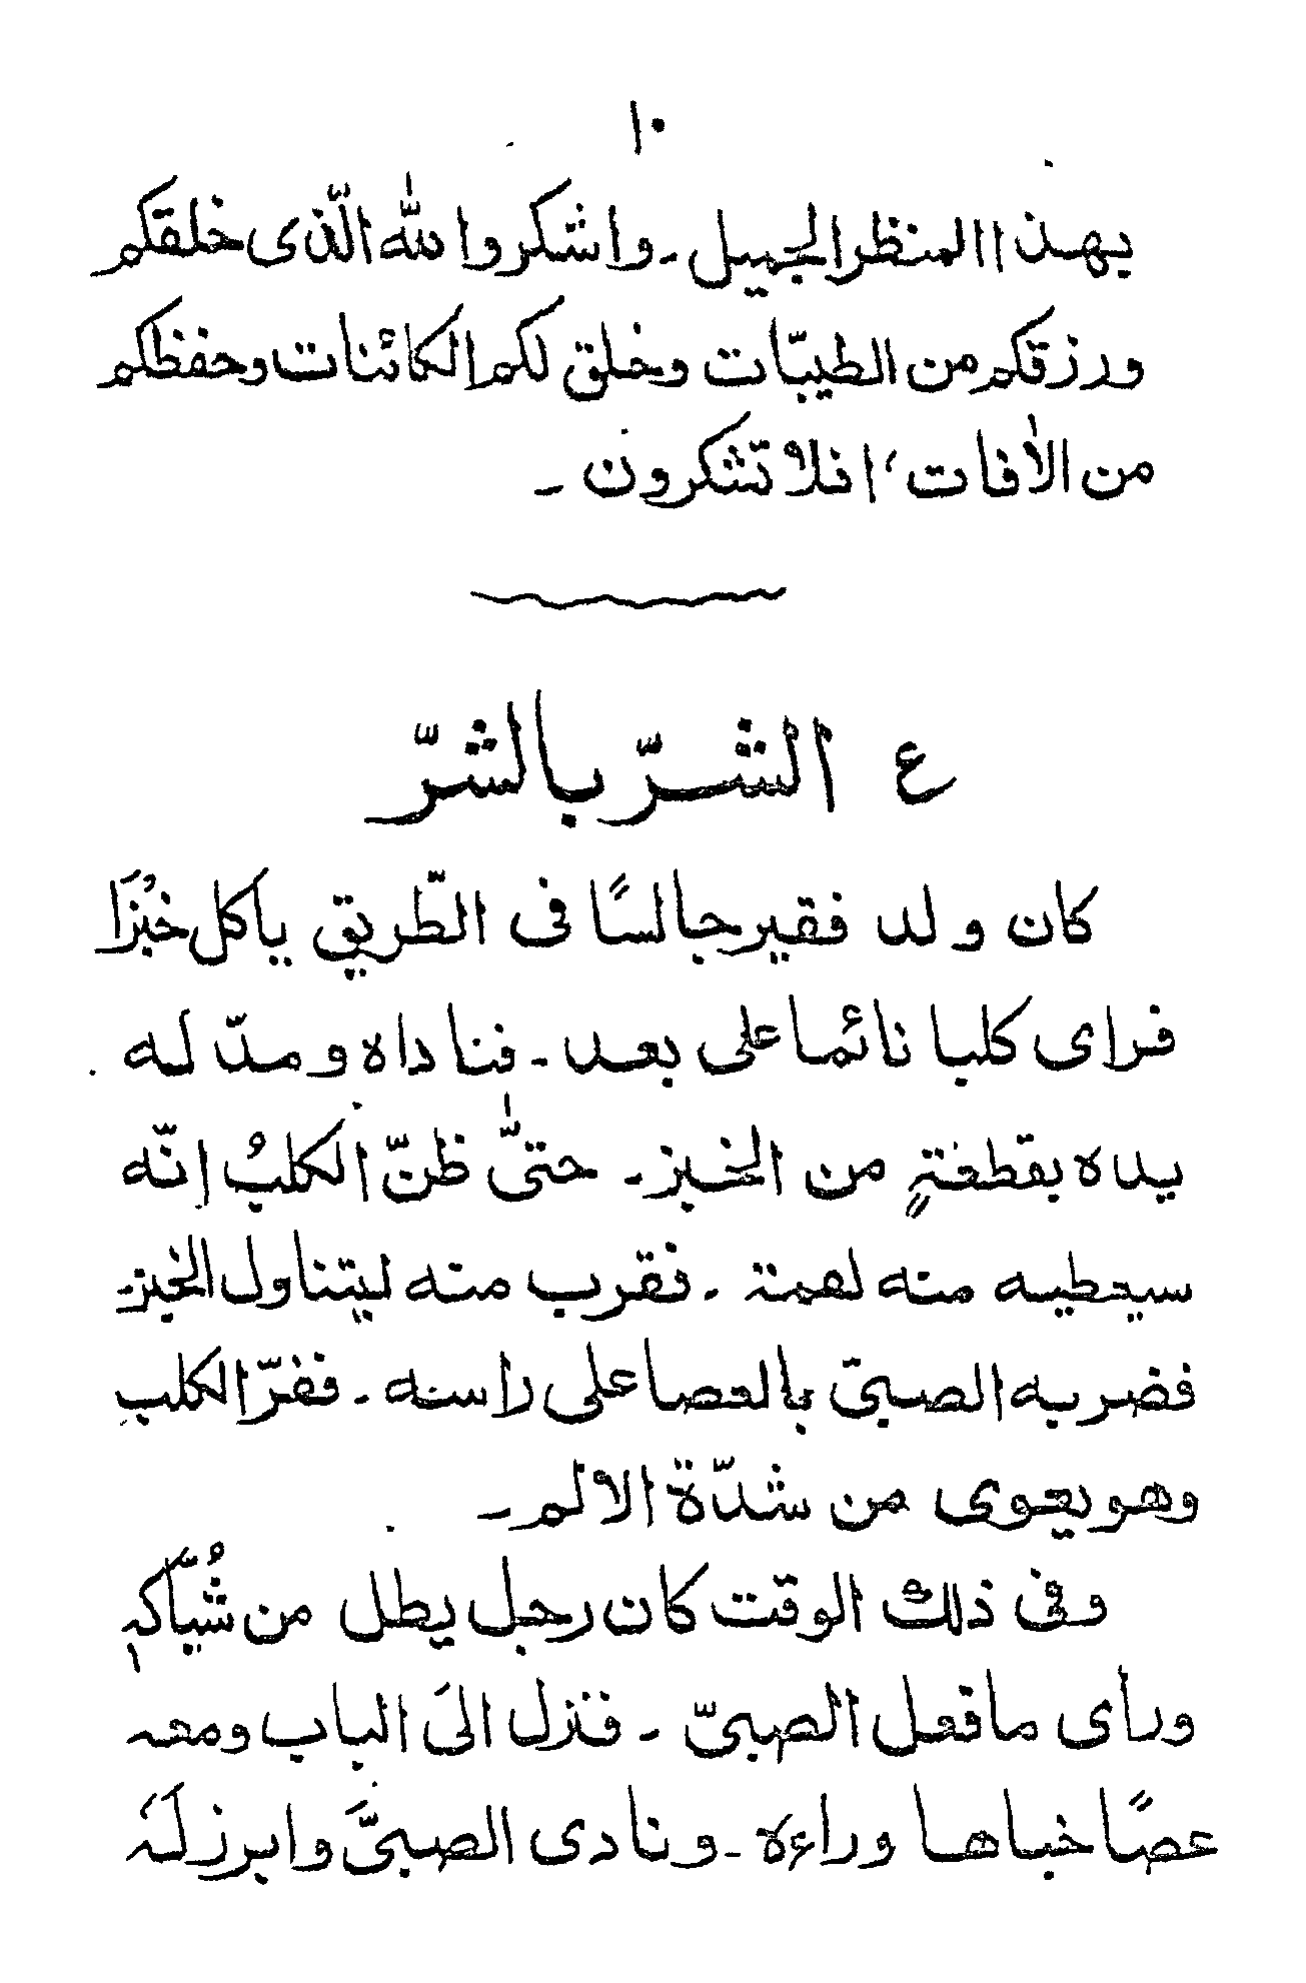 ١٠
بهذا المنظر الجميل ـ واشكروا لله الّذى خلقكم
ورزقكم من الطيّبات وخلق لكم الكائنات وحفظكم
من الاٰفات، افلا تشكرون ـ
ع الشرّ بالشرّ
كان ولد فقير جالسًا فى الطّريق ياكل خبُزًا
فراى كلبا نائما على بعد ـ فناداه ومدّ له
يده بقطعةٍ من الخبز ـ حتىّٰ ظنّ الكلبُ انّه
سيعطيه منه لقمة ـ فقرب منه ليتناول الخبز ـ
فضربه الصبىّ بالعصا على راسه ـ ففرّ الكلب
وهو يعوى من شدّة الالم ـ
وفى ذلك الوقت كان رجل يطل من شُبّاكهٖ
ورأى ما فعل الصبىّ ـ فنزل الىَ الباب ومعه
عصًا خباها وراءه ـ ونادى الصبىَّ وابرز لَهٗ